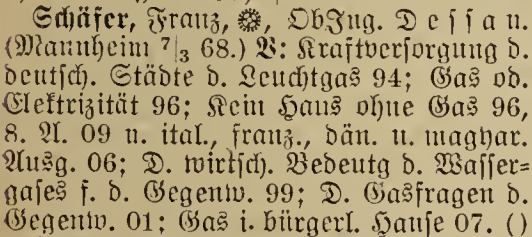 Schäfer, Franz, ⚙, ObJng. Dessau.
(Mannheim 7/3 68.) V: Kraftversorgung d.
deutsch. Städte d. Leuchtgas 94; Gas od.
Elektrizität 96; Kein Haus ohne Gas 96,
8. A. 09 u. ital., franz., dän. u. magyar.
Ausg. 06; D. wirtsch. Bedeutg d. Wasser=
gases f. d. Gegenw. 99; D. Gasfragen d.
Gegenw. 01; Gas i. bürgerl. Hause 07. ()